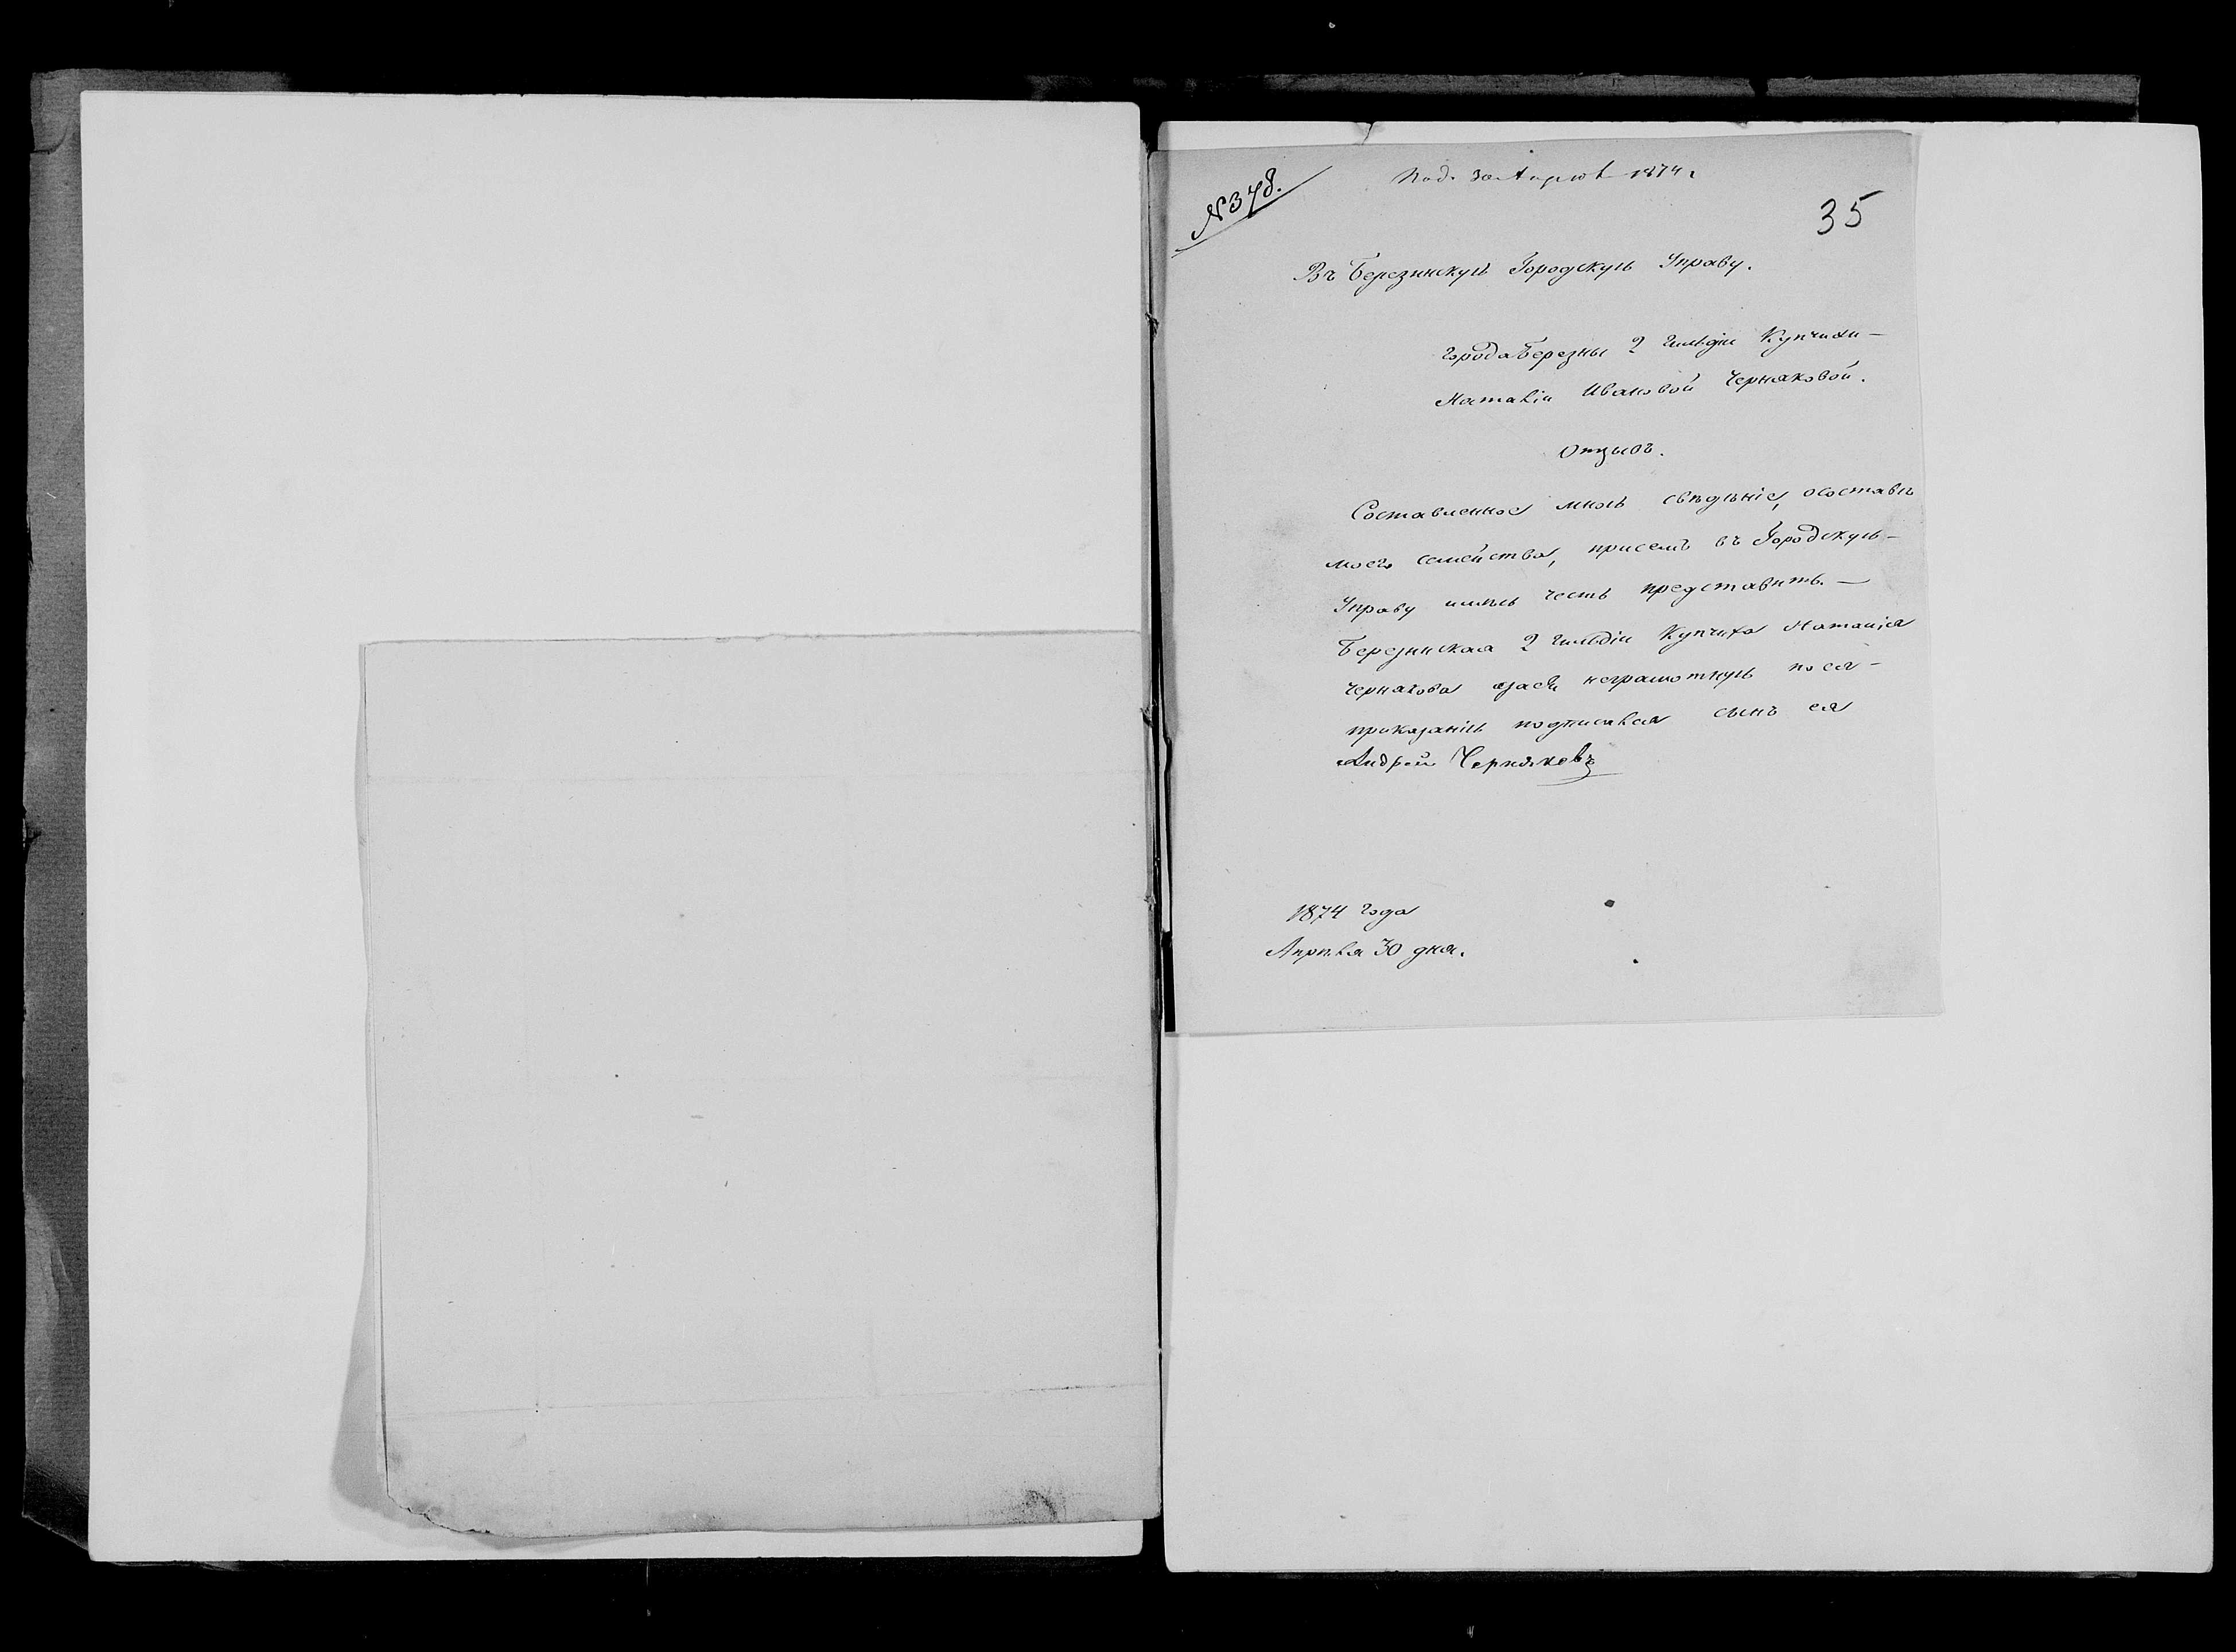 № 378.
Под. 30 Апреля 1874 г
35
Въ Березинскую Городскую Управу.
Города Березны 2 гильдіи Купчихи —
Наталіи Ивановой Черняковой.
Отзывъ.
Составленное мною свѣдѣніе, о составѣ
моего семейства, при семъ въ Городскую —
Управу имѣю честь представить. —
Березинская 2 гильдіи Купчиха Наталія
Чернякова а за ея неграмотную по ея —
приказанію подписался сынъ ея
Андрей Черняковъ
1874 года
Апрѣля 30 дня.